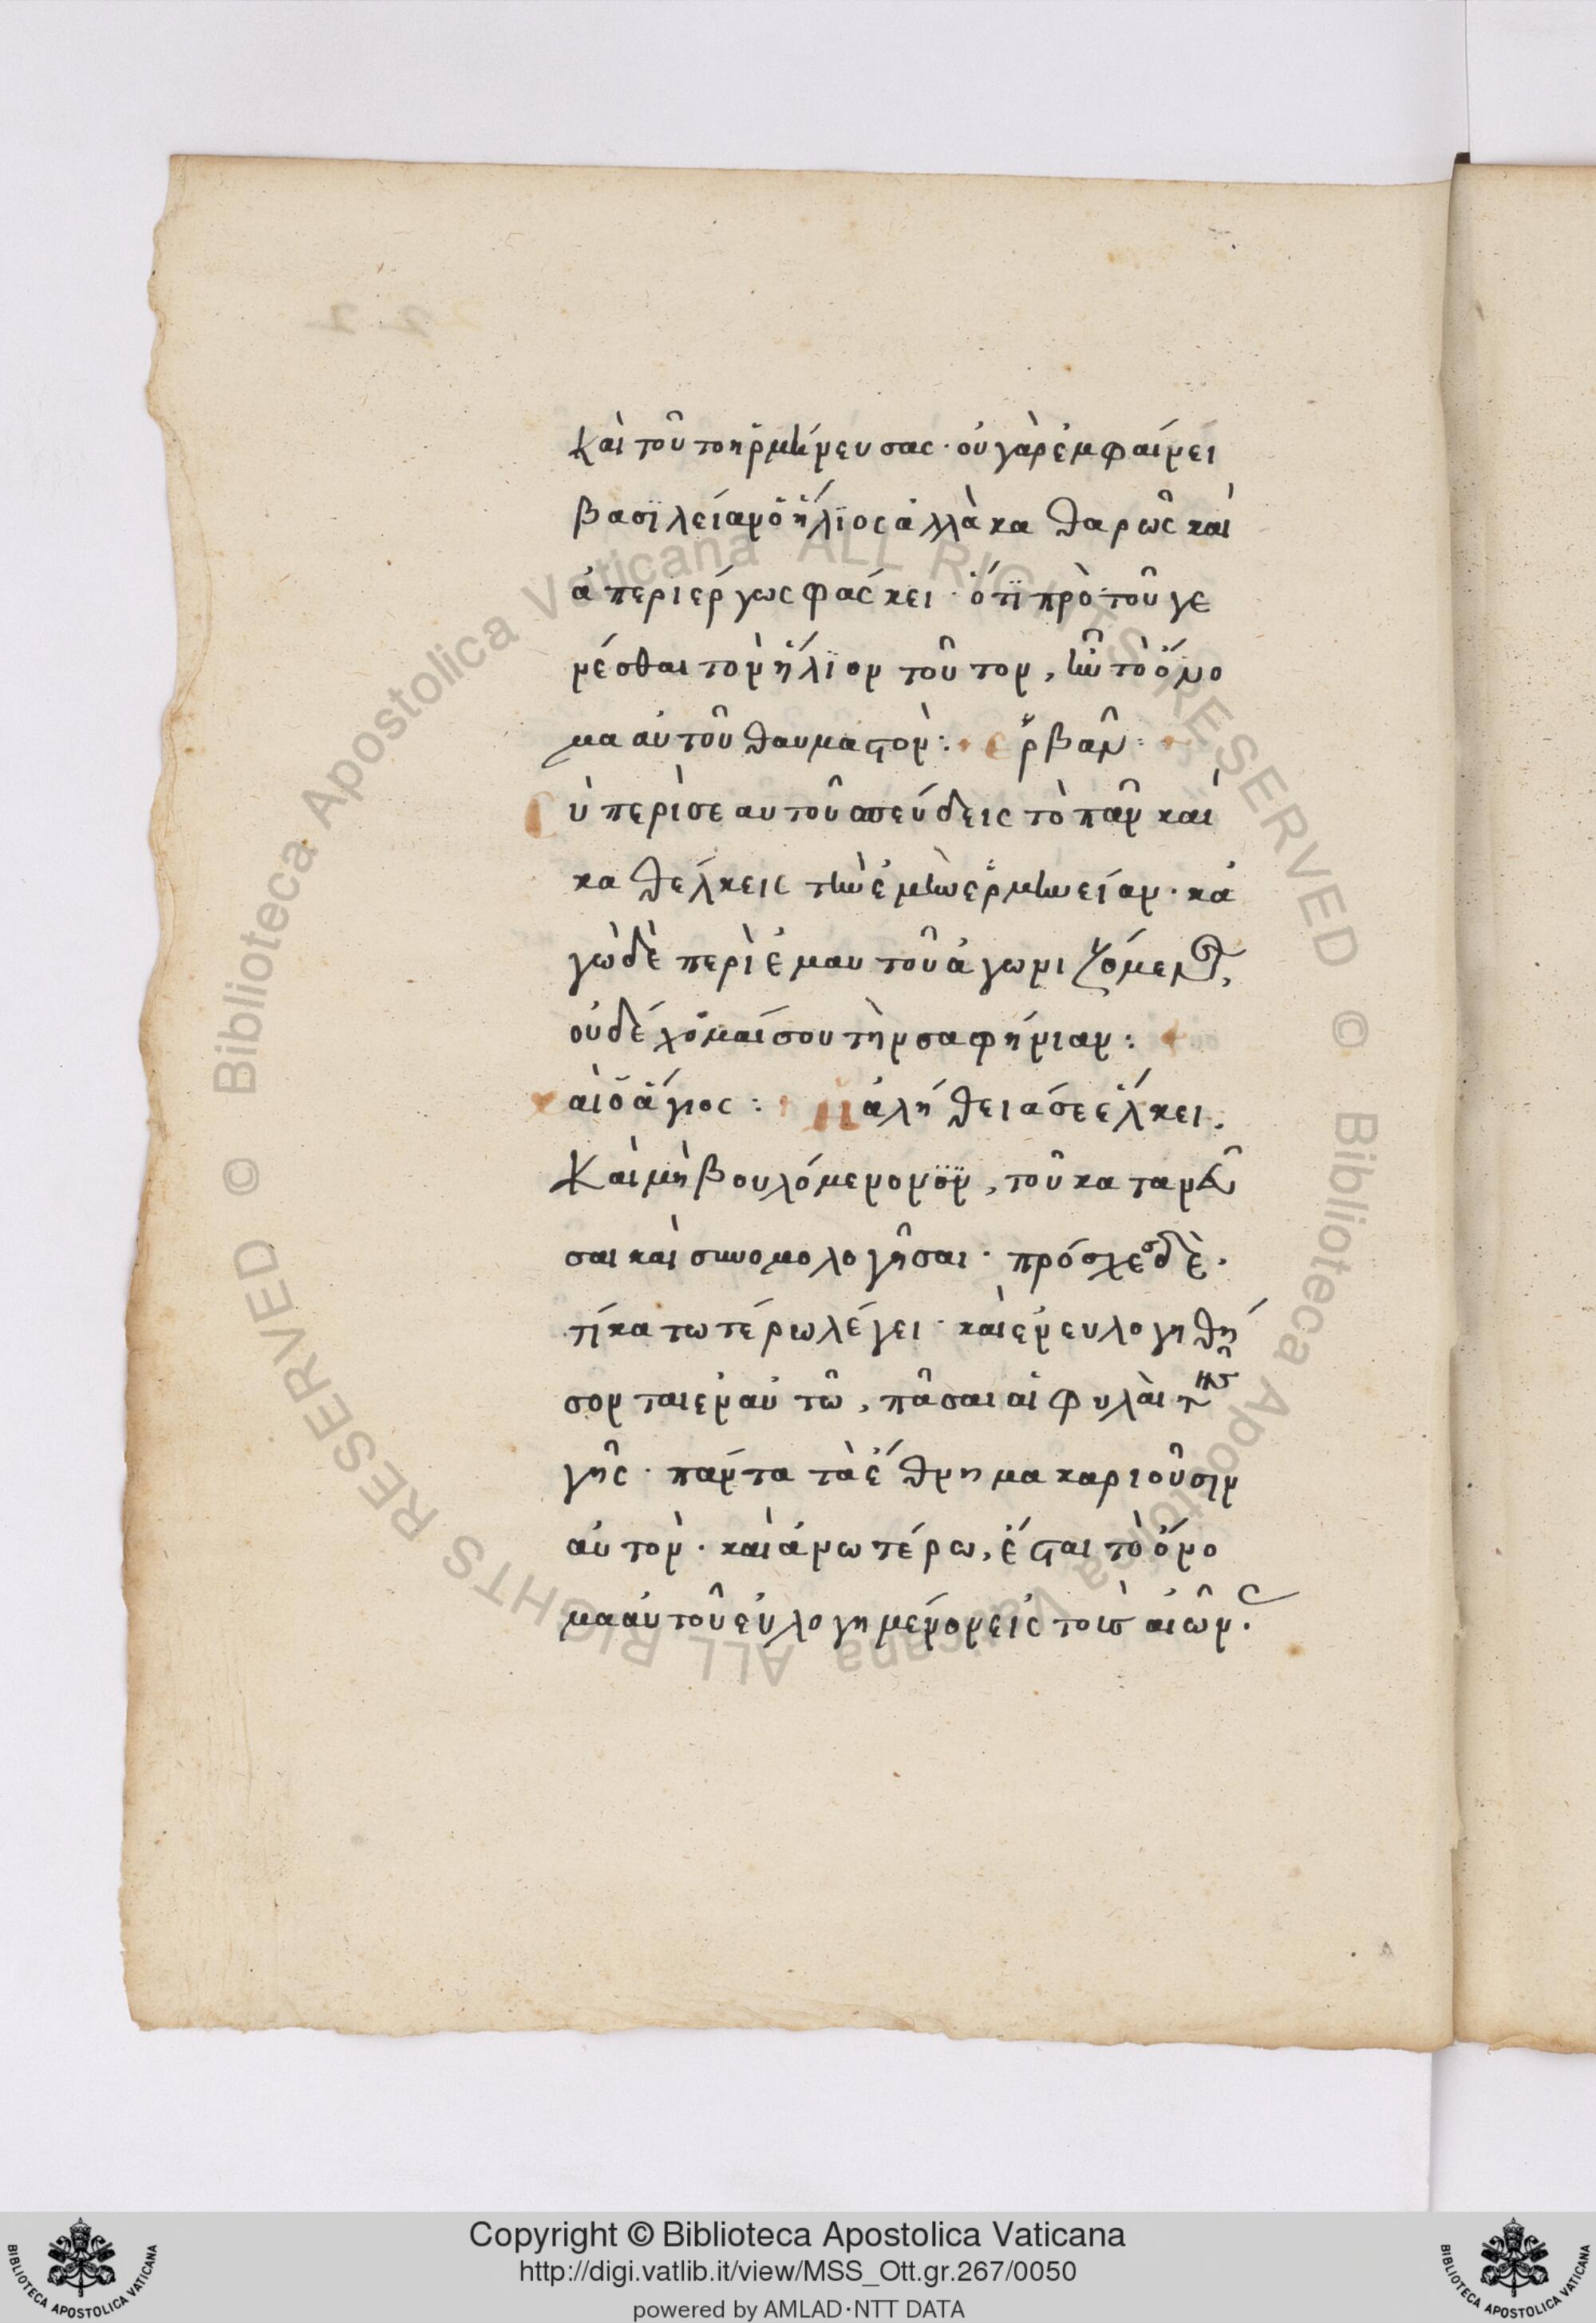 καὶ τοῦτο ἡρμήνευσας· οὐ γὰρ ἐμφαίνει
βασϊλείαν ὁ ἥλϊος ἀλλὰ καθαρῶς καὶ
ἀπεριέργως φάσκει· ὅτϊ πρὸ τοῦ γε
νέσθαι τὸν ἥλϊον τοῦτον, ἦν τὸ ὄνο
μα αὐτοῦ θαυμαστόν: Ἑρβὰν:
ὑπερὶ σεαυτοῦ σπεύδεις τὸ πᾶν καὶ
καθέλκεις τὴν ἐμὴν ἑρμηνείαν· κἀ
γὼ δὲ περὶ ἐμαυτοῦ ἀγωνιζόμενος,
οὐ δέχομαί σου τὴν σαφήνιαν:
αι ὁ ἅγιος: Ἡ ἀλήθεια σε ἕλκει.
Καὶ μὴ βουλόμενον ὂν, τοῦ κατανεῦ
σαι καὶ συνομολογῆσαι· πρόσχες δὲ.
τί κατωτέρω λέγει· καὶ ἐνευλογηθή
σονται ἐν αὐτῶ, πᾶσαι αἱ φυλαὶ τῆς
γῆς· πάντα τὰ ἔθνη μακαριοῦσιν
αὐτόν· καὶ ἀνωτέρω, ἔσται τὸ ὄνο
μα αὐτοῦ εὐλογημένον εἰς τοὺς αἰῶνας.
Copyright © Biblioteca Apostolica Vaticana
http://digi.vatlib.it/view/MSS_Ott.gr.267/0050
powered by AMLAD·NTT DATA